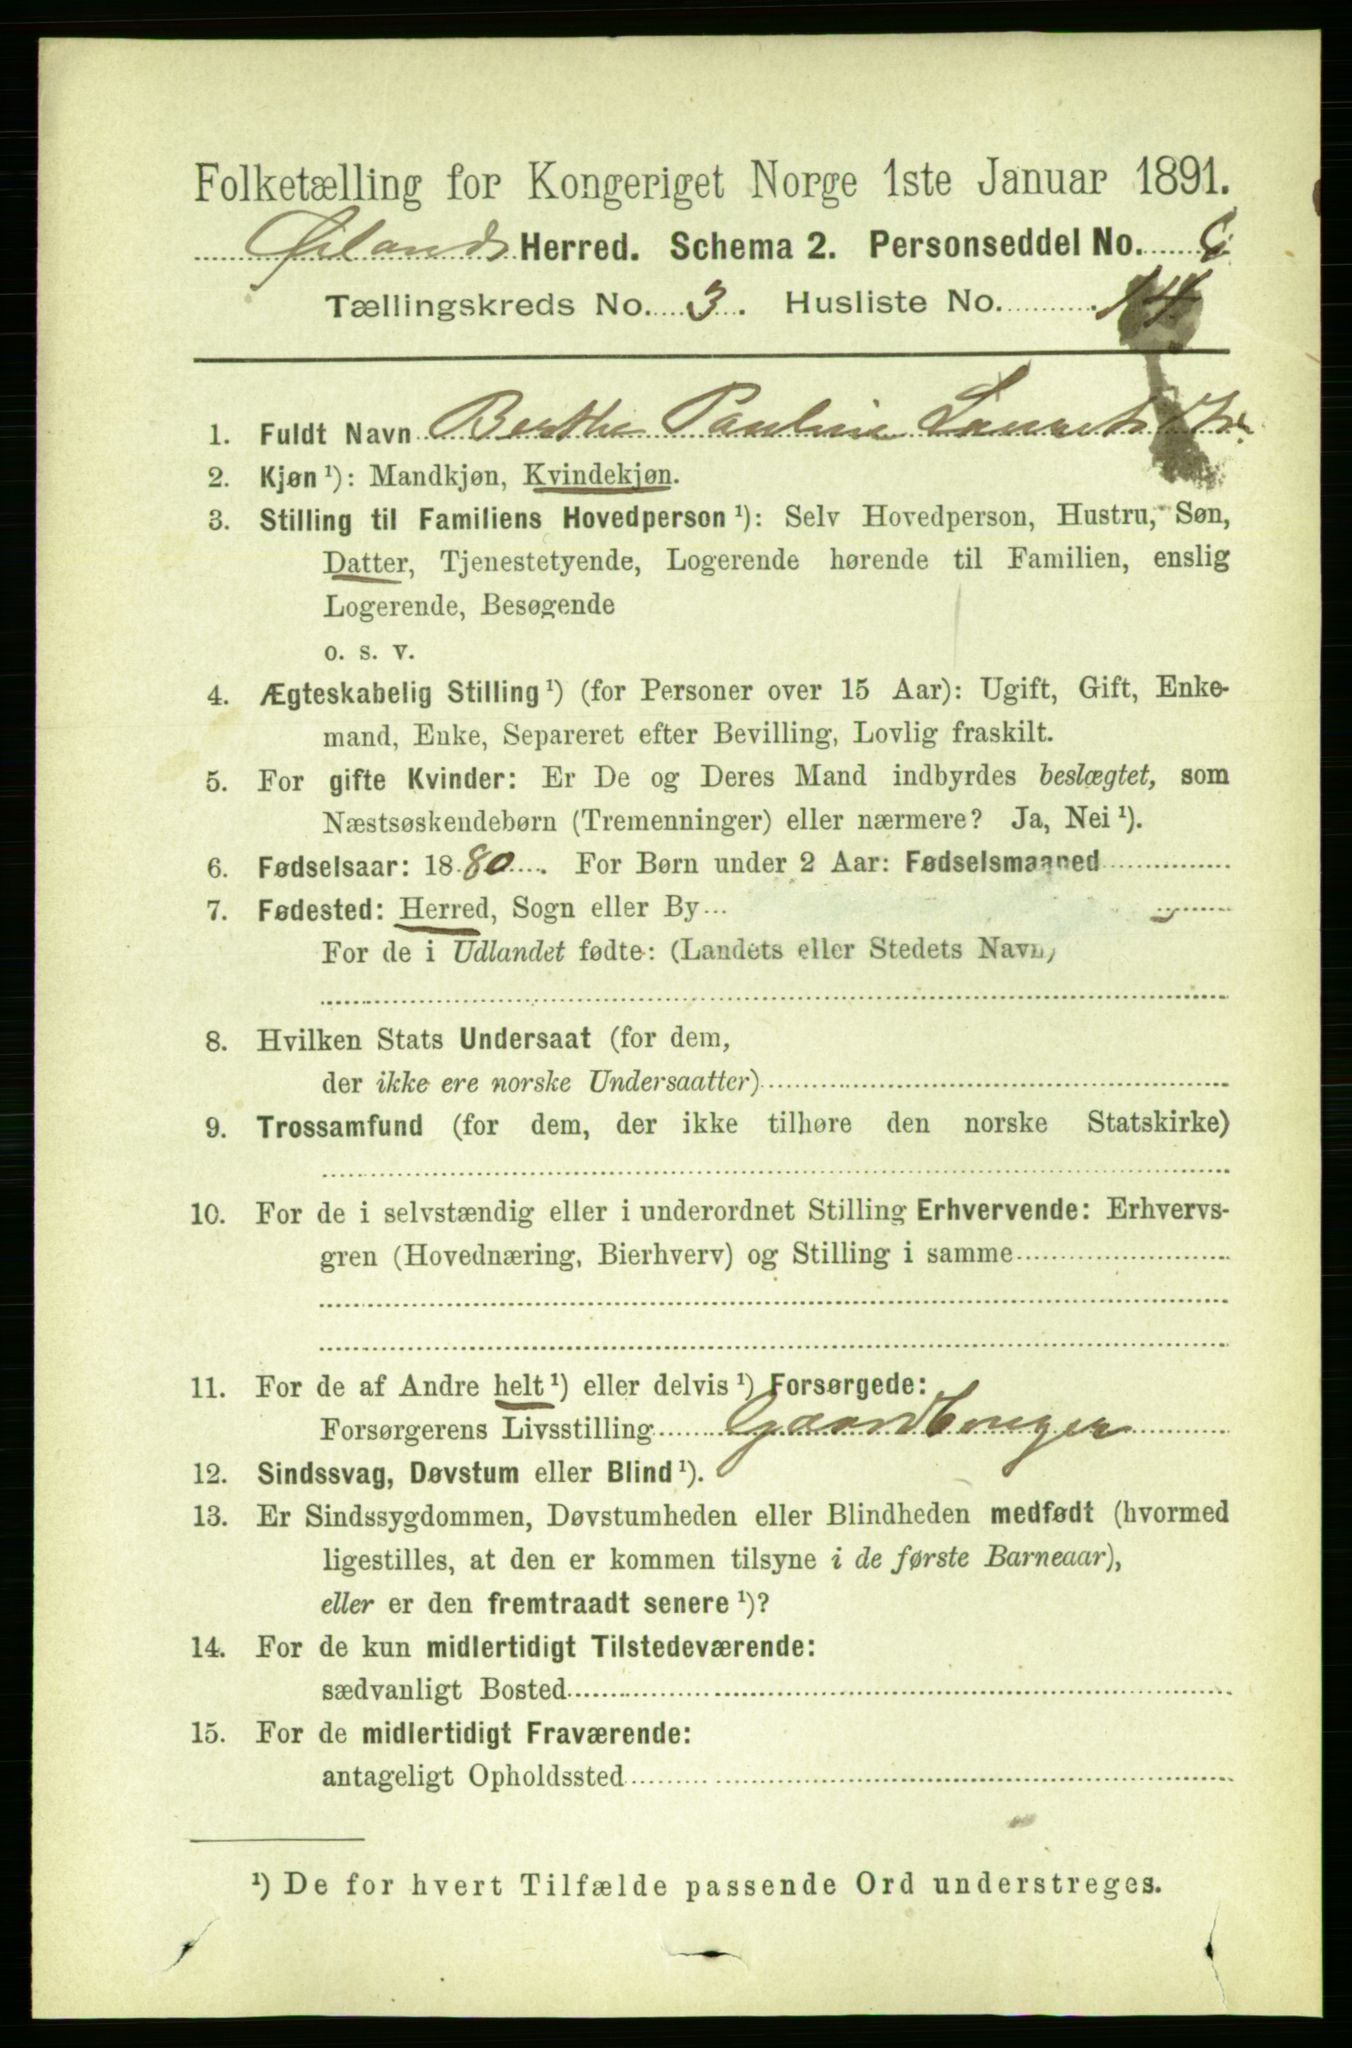 Folketælling for Kongeriget Norge 1ste Januar 1891.
Herred. Schema 2. Personseddel No.
Tællingskreds No. 3. Husliste No. 14
1. Fuldt Navn Berthe Pauline
2. Kjøn ¹): Mandkjøn, Kvindekjøn.
3. Stilling til Familiens Hovedperson ¹): Selv Hovedperson, Hustru, Søn,
Datter, Tjenestetyende, Logerende hørende til Familien, enslig
Logerende, Besøgende
o. s. v.
4. Ægteskabelig Stilling ¹) (for Personer over 15 Aar): Ugift, Gift, Enke-
mand, Enke, Separeret efter Bevilling, Lovlig fraskilt.
5. For gifte Kvinder: Er De og Deres Mand indbyrdes beslægtet, som
Næstsøskendebørn (Tremenninger) eller nærmere? Ja, Nei ¹).
6. Fødselsaar: 1880. For Børn under 2 Aar: Fødselsmaaned
7. Fødested: Herred, Sogn eller By
For de i Udlandet fødte: (Landets eller Stedets Navn)
8. Hvilken Stats Undersaat (for dem,
der ikke ere norske Undersaatter)
9. Trossamfund (for dem, der ikke tilhøre den norske Statskirke)
10. For de i selvstændig eller i underordnet Stilling Erhvervende: Erhvervs-
gren (Hovednæring, Bierhverv) og Stilling i samme
11. For de af Andre helt ¹) eller delvis ¹) Forsørgede:
Forsørgerens Livsstilling Gaardbruger
12. Sindssvag, Døvstum eller Blind ¹).
13. Er Sindssygdommen, Døvstumheden eller Blindheden medfødt (hvormed
ligestilles, at den er kommen tilsyne i de første Barneaar),
eller er den fremtraadt senere ¹)?
14. For de kun midlertidigt Tilstedeværende:
sædvanligt Bosted
15. For de midlertidigt Fraværende:
antageligt Opholdssted
¹) De for hvert Tilfælde passende Ord understreges.